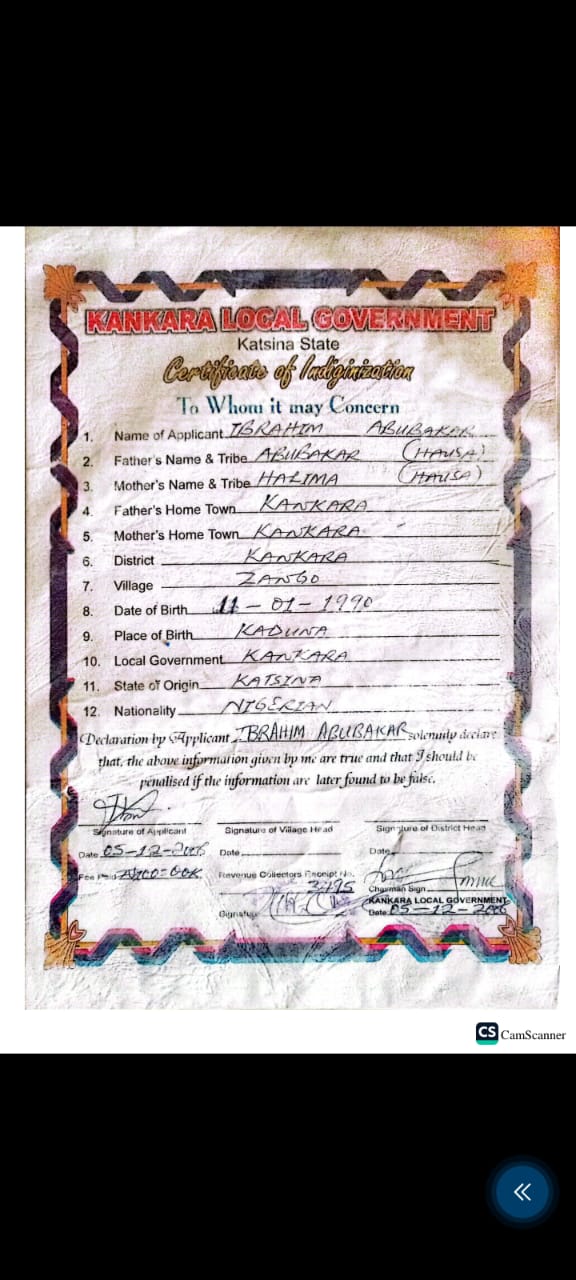 KANKARA LOCAL GOVERNMENT
Katsina State
Certificate of Indiginization
To Whom it may Concern
1. Name of Applicant IBRAHIM ABUBAKAR
2. Father's Name & Tribe ABUBAKAR (HAUSA)
3. Mother's Name & Tribe HALIMA (HAUSA)
4. Father's Home Town KANKARA
5. Mother's Home Town KANKARA
6. District KANKARA
7. Village ZANGO
8. Date of Birth 11-01-1990
9. Place of Birth KADUNA
10. Local Government KANKARA
11. State of Origin KATSINA
12. Nationality NIGERIAN
Declaration by Applicant IBRAHIM ABUBAKAR solemnly declare
that, the above information given by me are true and that I should be
penalised if the information are later found to be false.
Signature of Applicant Signature of Village Head Signature of District Head
Date 05-12-2006 Date Date
Fee Paid Revenue Collectors Receipt No.
3495 Chayman Sign
KANKARA LOCAL GOVERNMENT
Signature Date 05-12-2006
CS CamScanner